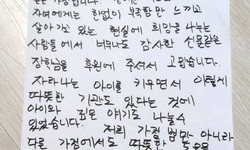 자녀에게는 한없이 부족함만 느끼고
살아가고 있는 현실에 희망을 나누는
사람들에서 너무나도 감사한 선물같은
장학금을 후원해 주셔서 고맙습니다.
자라나는 아이를 키우면서 이렇게
따뜻한 기관도 있다는 것에
아이와 깊은 얘기도 나눌수
있었습니다.
저희 가정 뿐만 아니라
다른 가정에서도 따뜻한